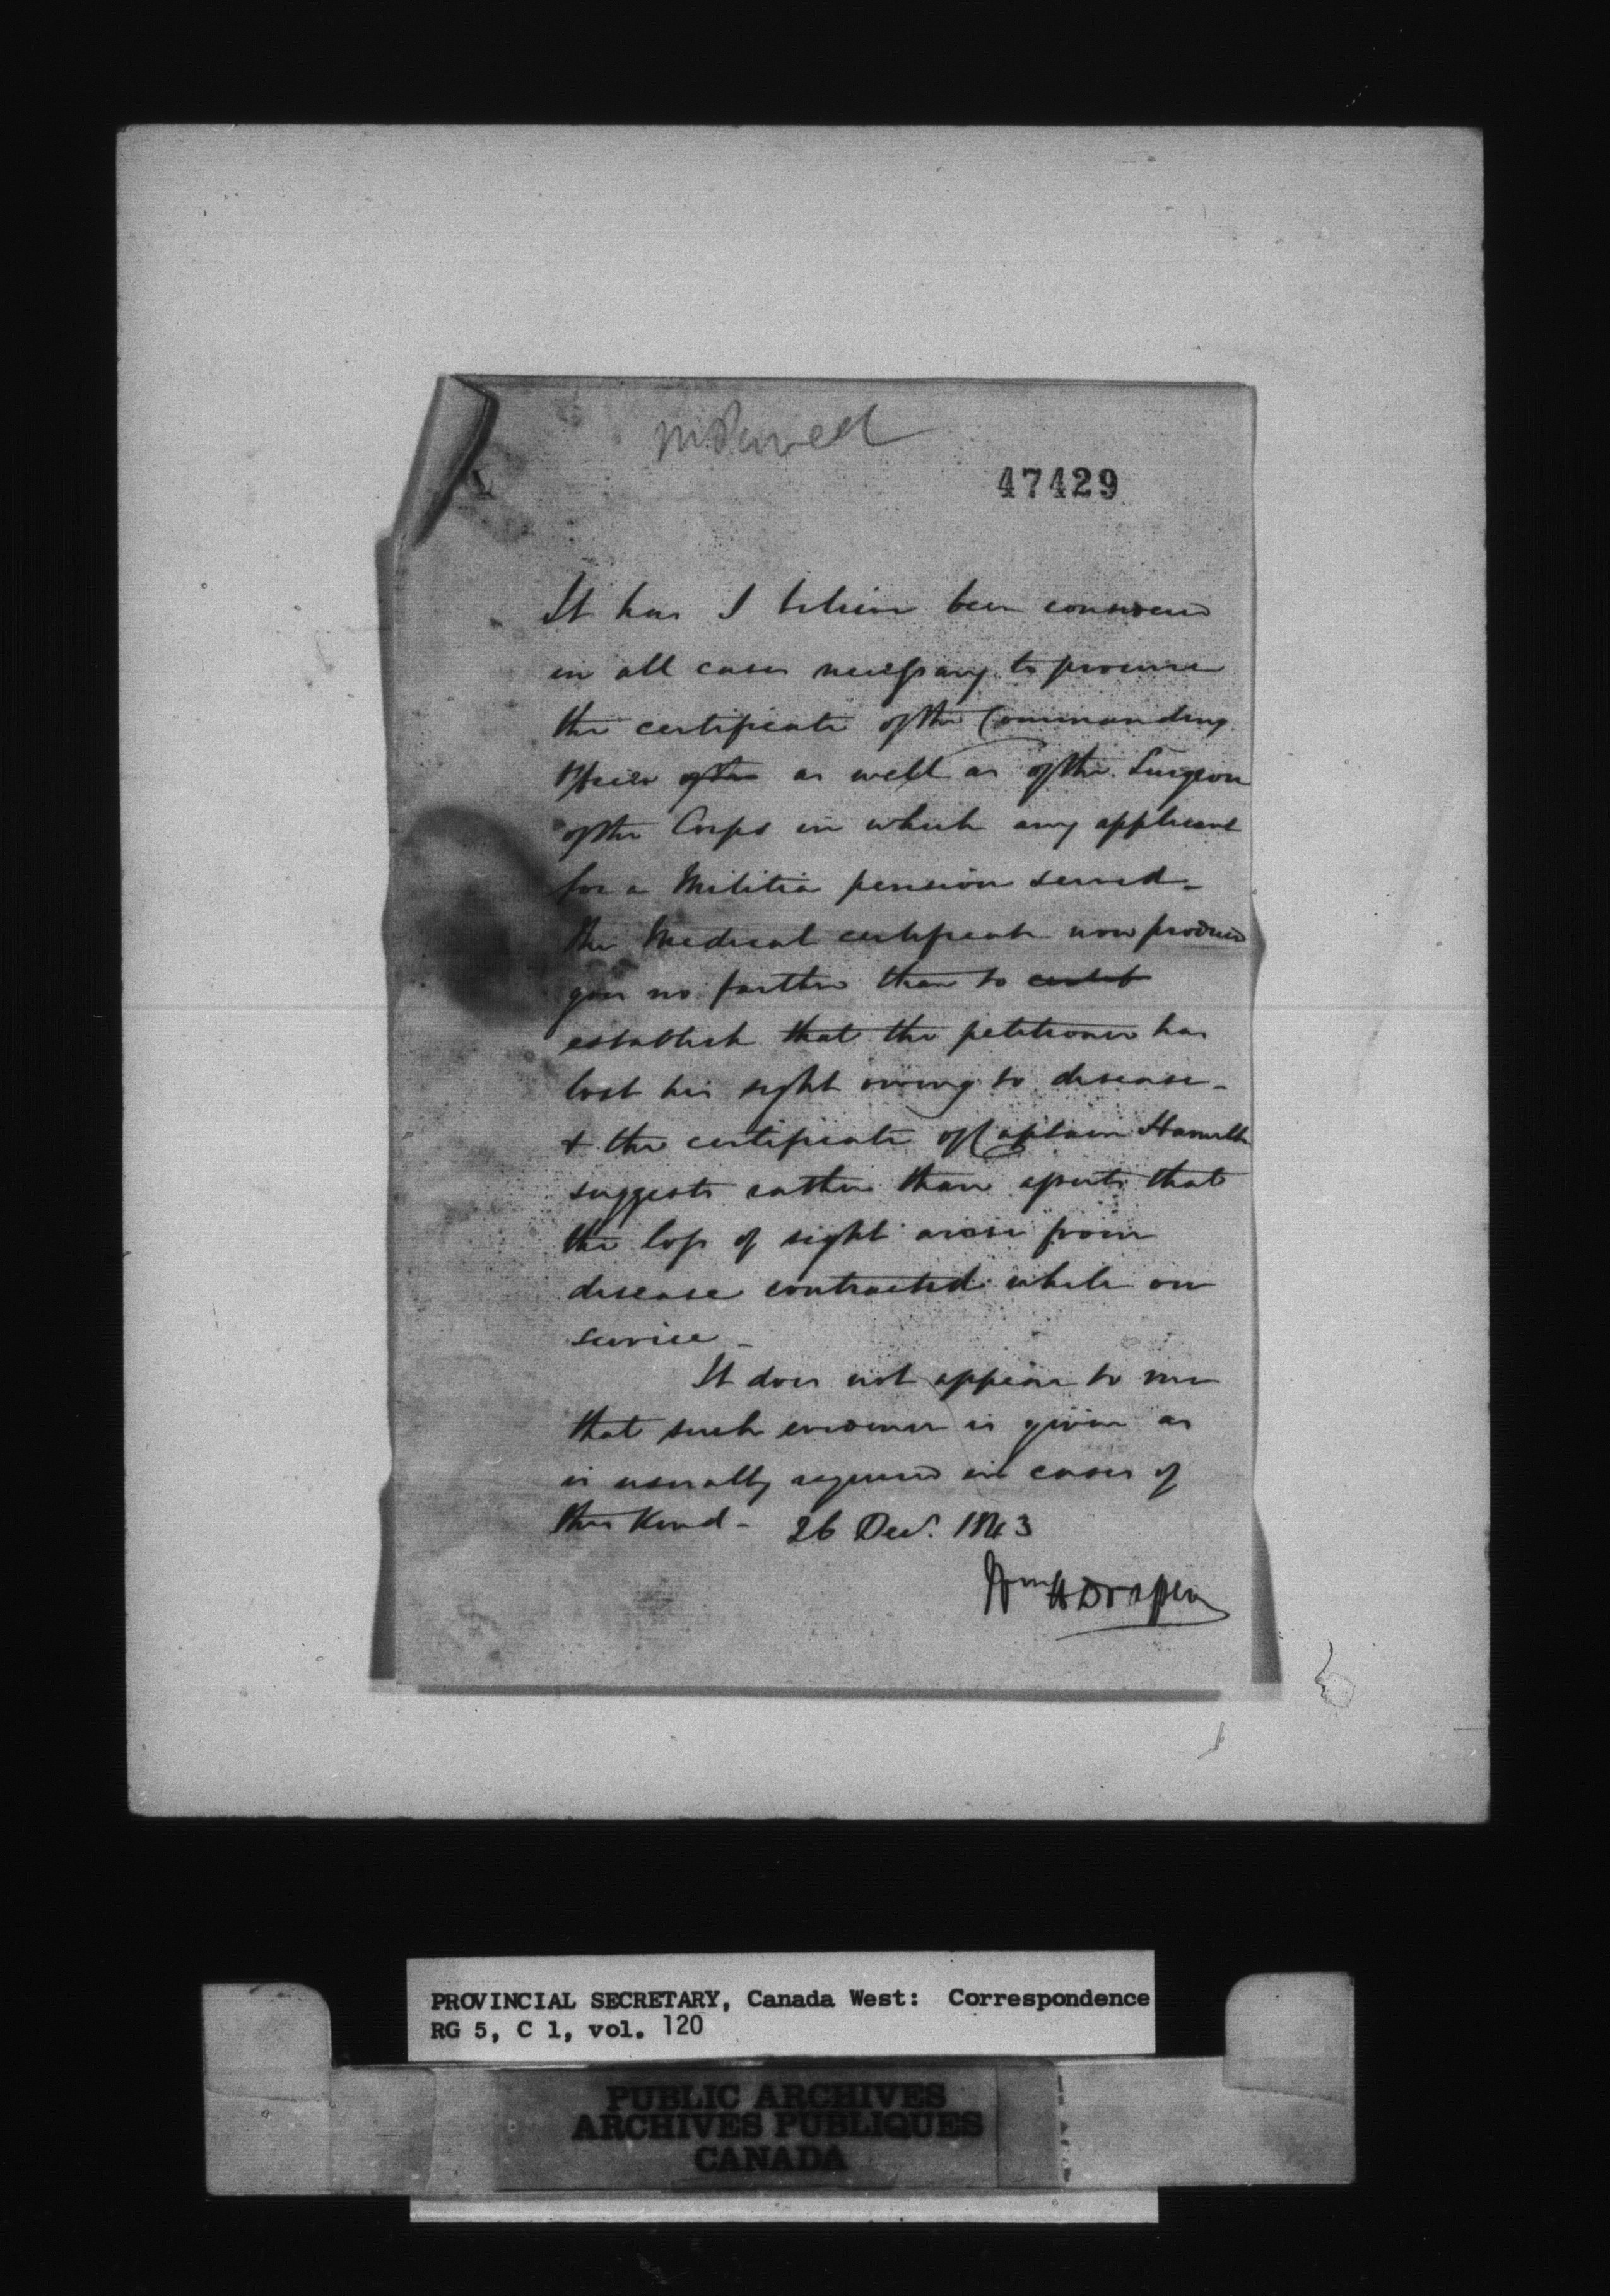 47429
It has I believe been considered
in all cases necessary to procure
the certificate of the Commanding
Officer of the as well as of the Surgeon
of the Corps in which any applicant
for a Militia pension served -
the Medical certificate now produced
goes no farther than to
establish that the petitioner has
lost his sight owing to disease -
& the certificate of Captain Hamilton
suggests rather than asserts that
the loss of sight arose from
disease contracted while on
service -
It does not appear to me
that such evidence is given as
is usually required in cases of
this kind - 26 Decr. 1843
Wm H Draper
PROVINCIAL SECRETARY, Canada West: Correspondence
RG 5, C 1, vol. 120
PUBLIC ARCHIVES
ARCHIVES PUBLIQUES
CANADA